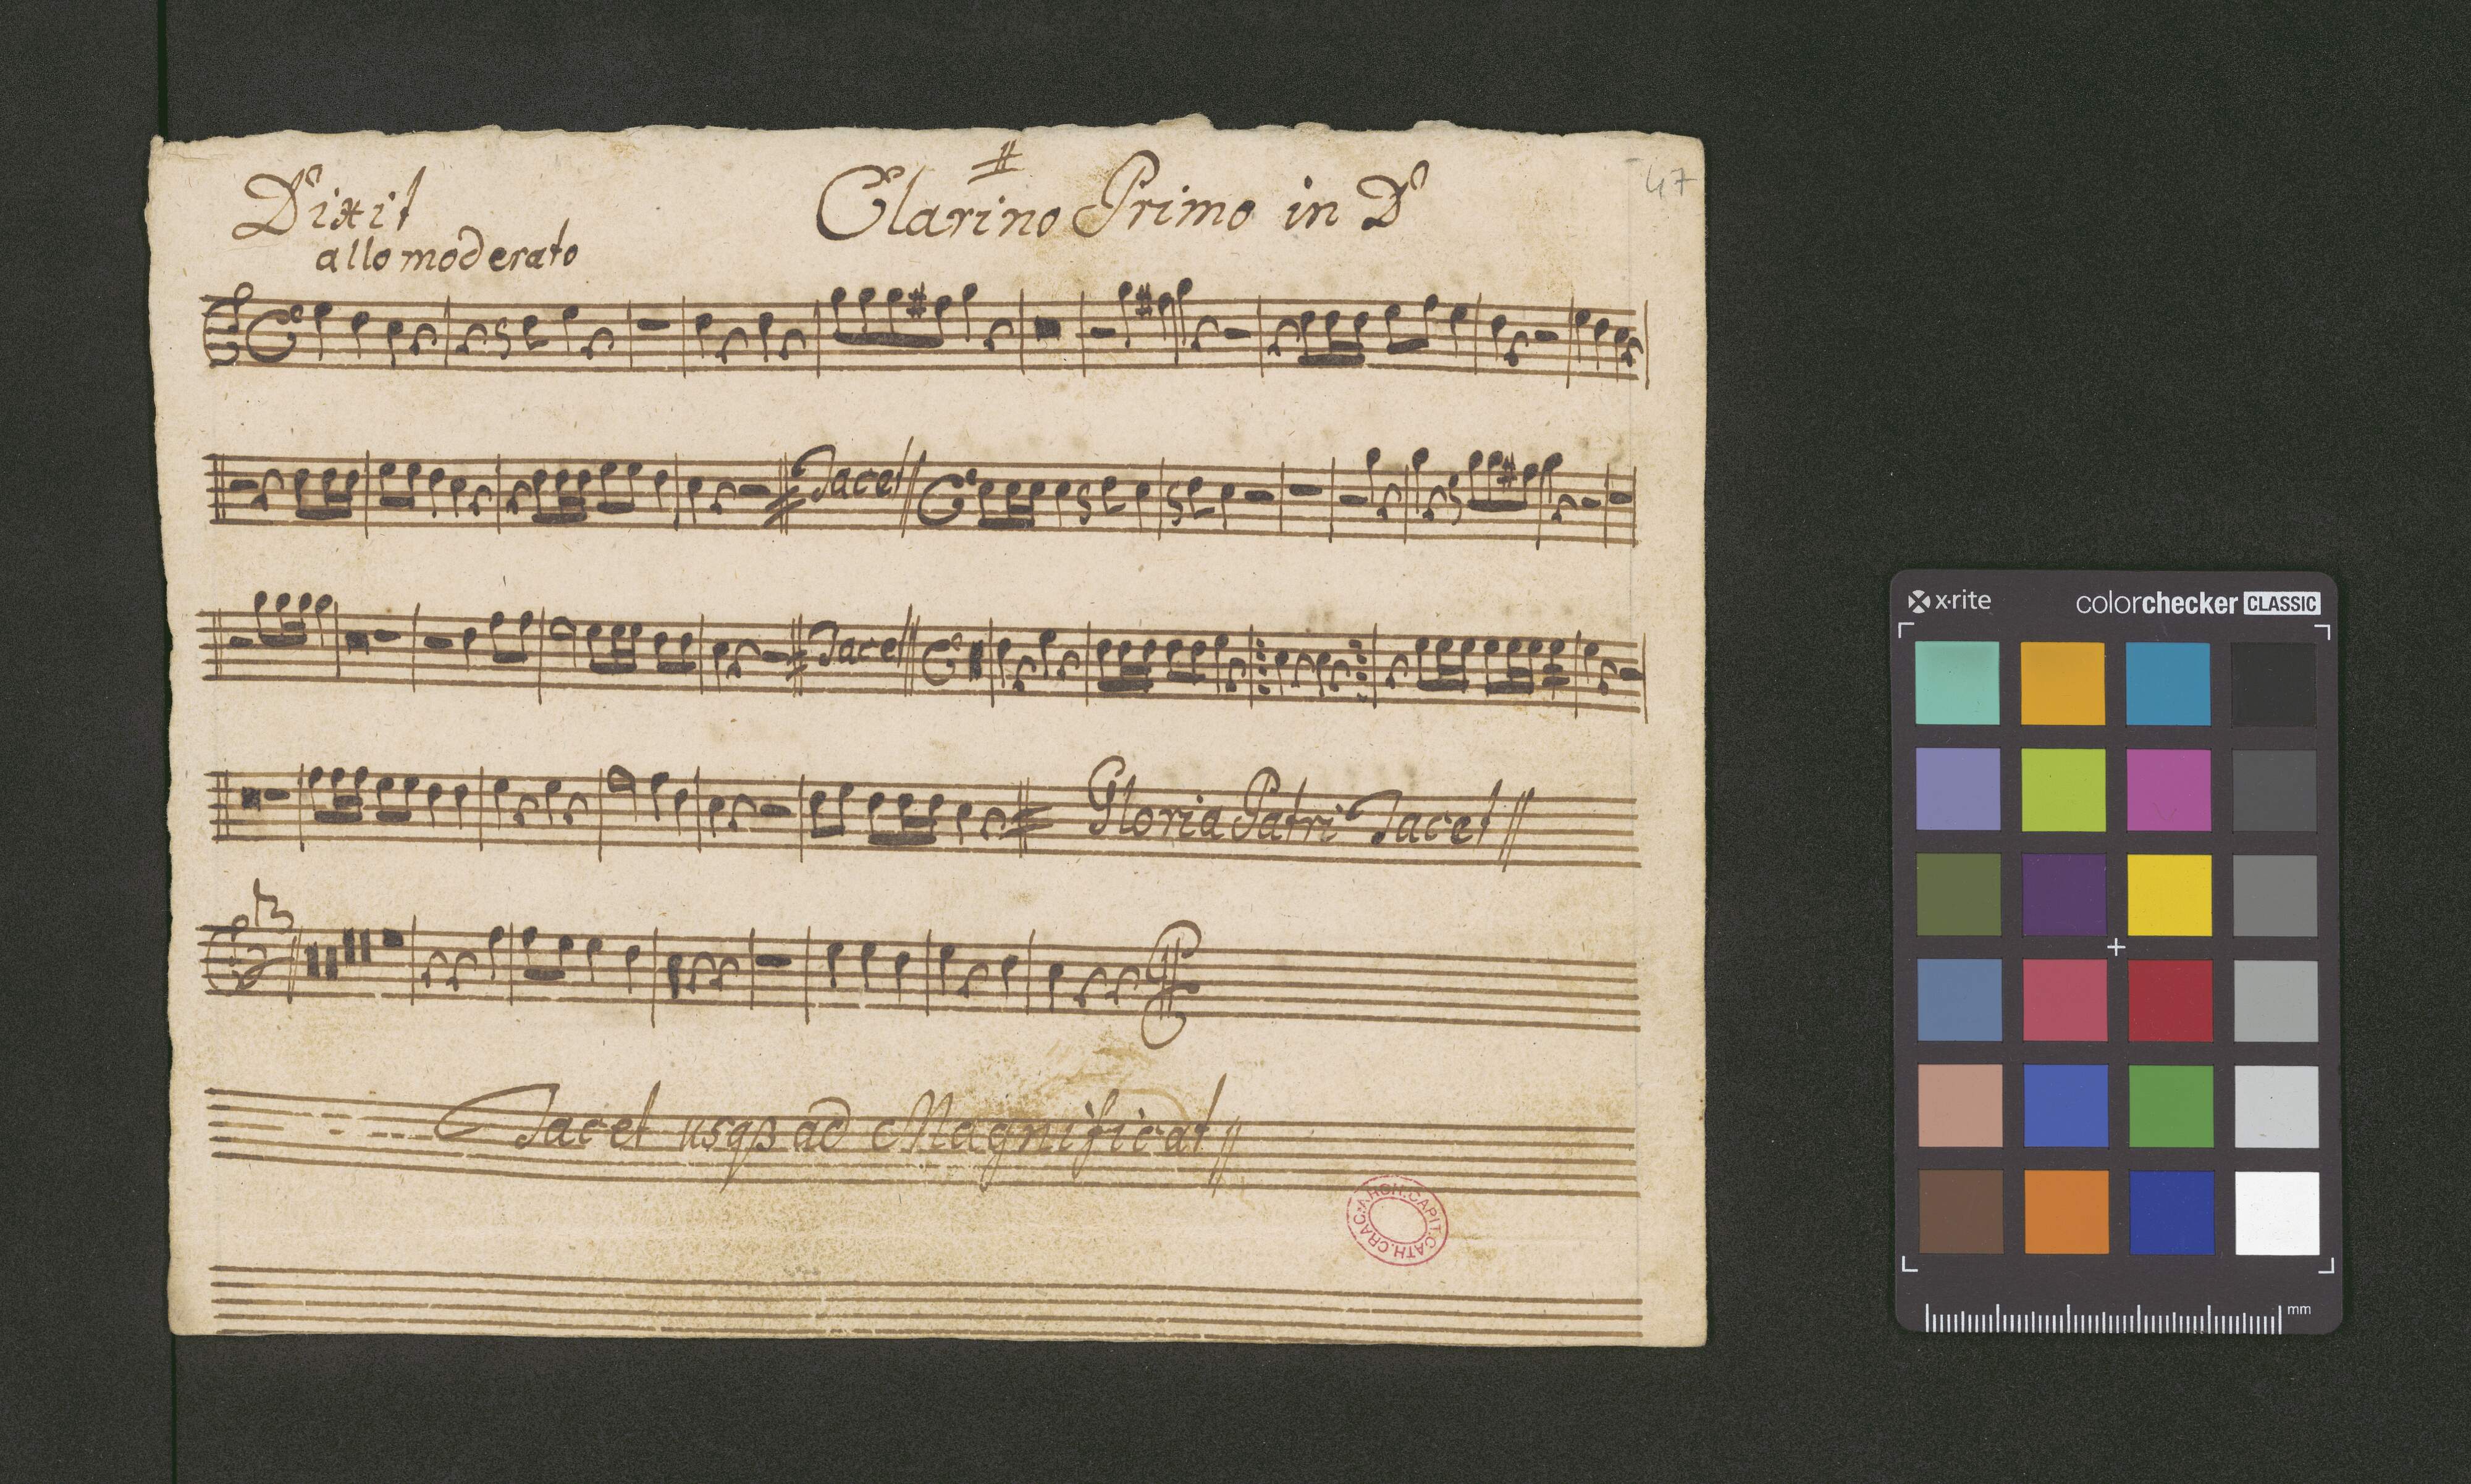 47
Dixit
Clarino Primo in D#
allo moderato
Tacet
Tacet
Gloria Patri Tacet
Tacet usqȝ ad Magnificat
ARCH.CAPIT.CATH.CRAC.
x·rite
colorchecker CLASSIC
mm